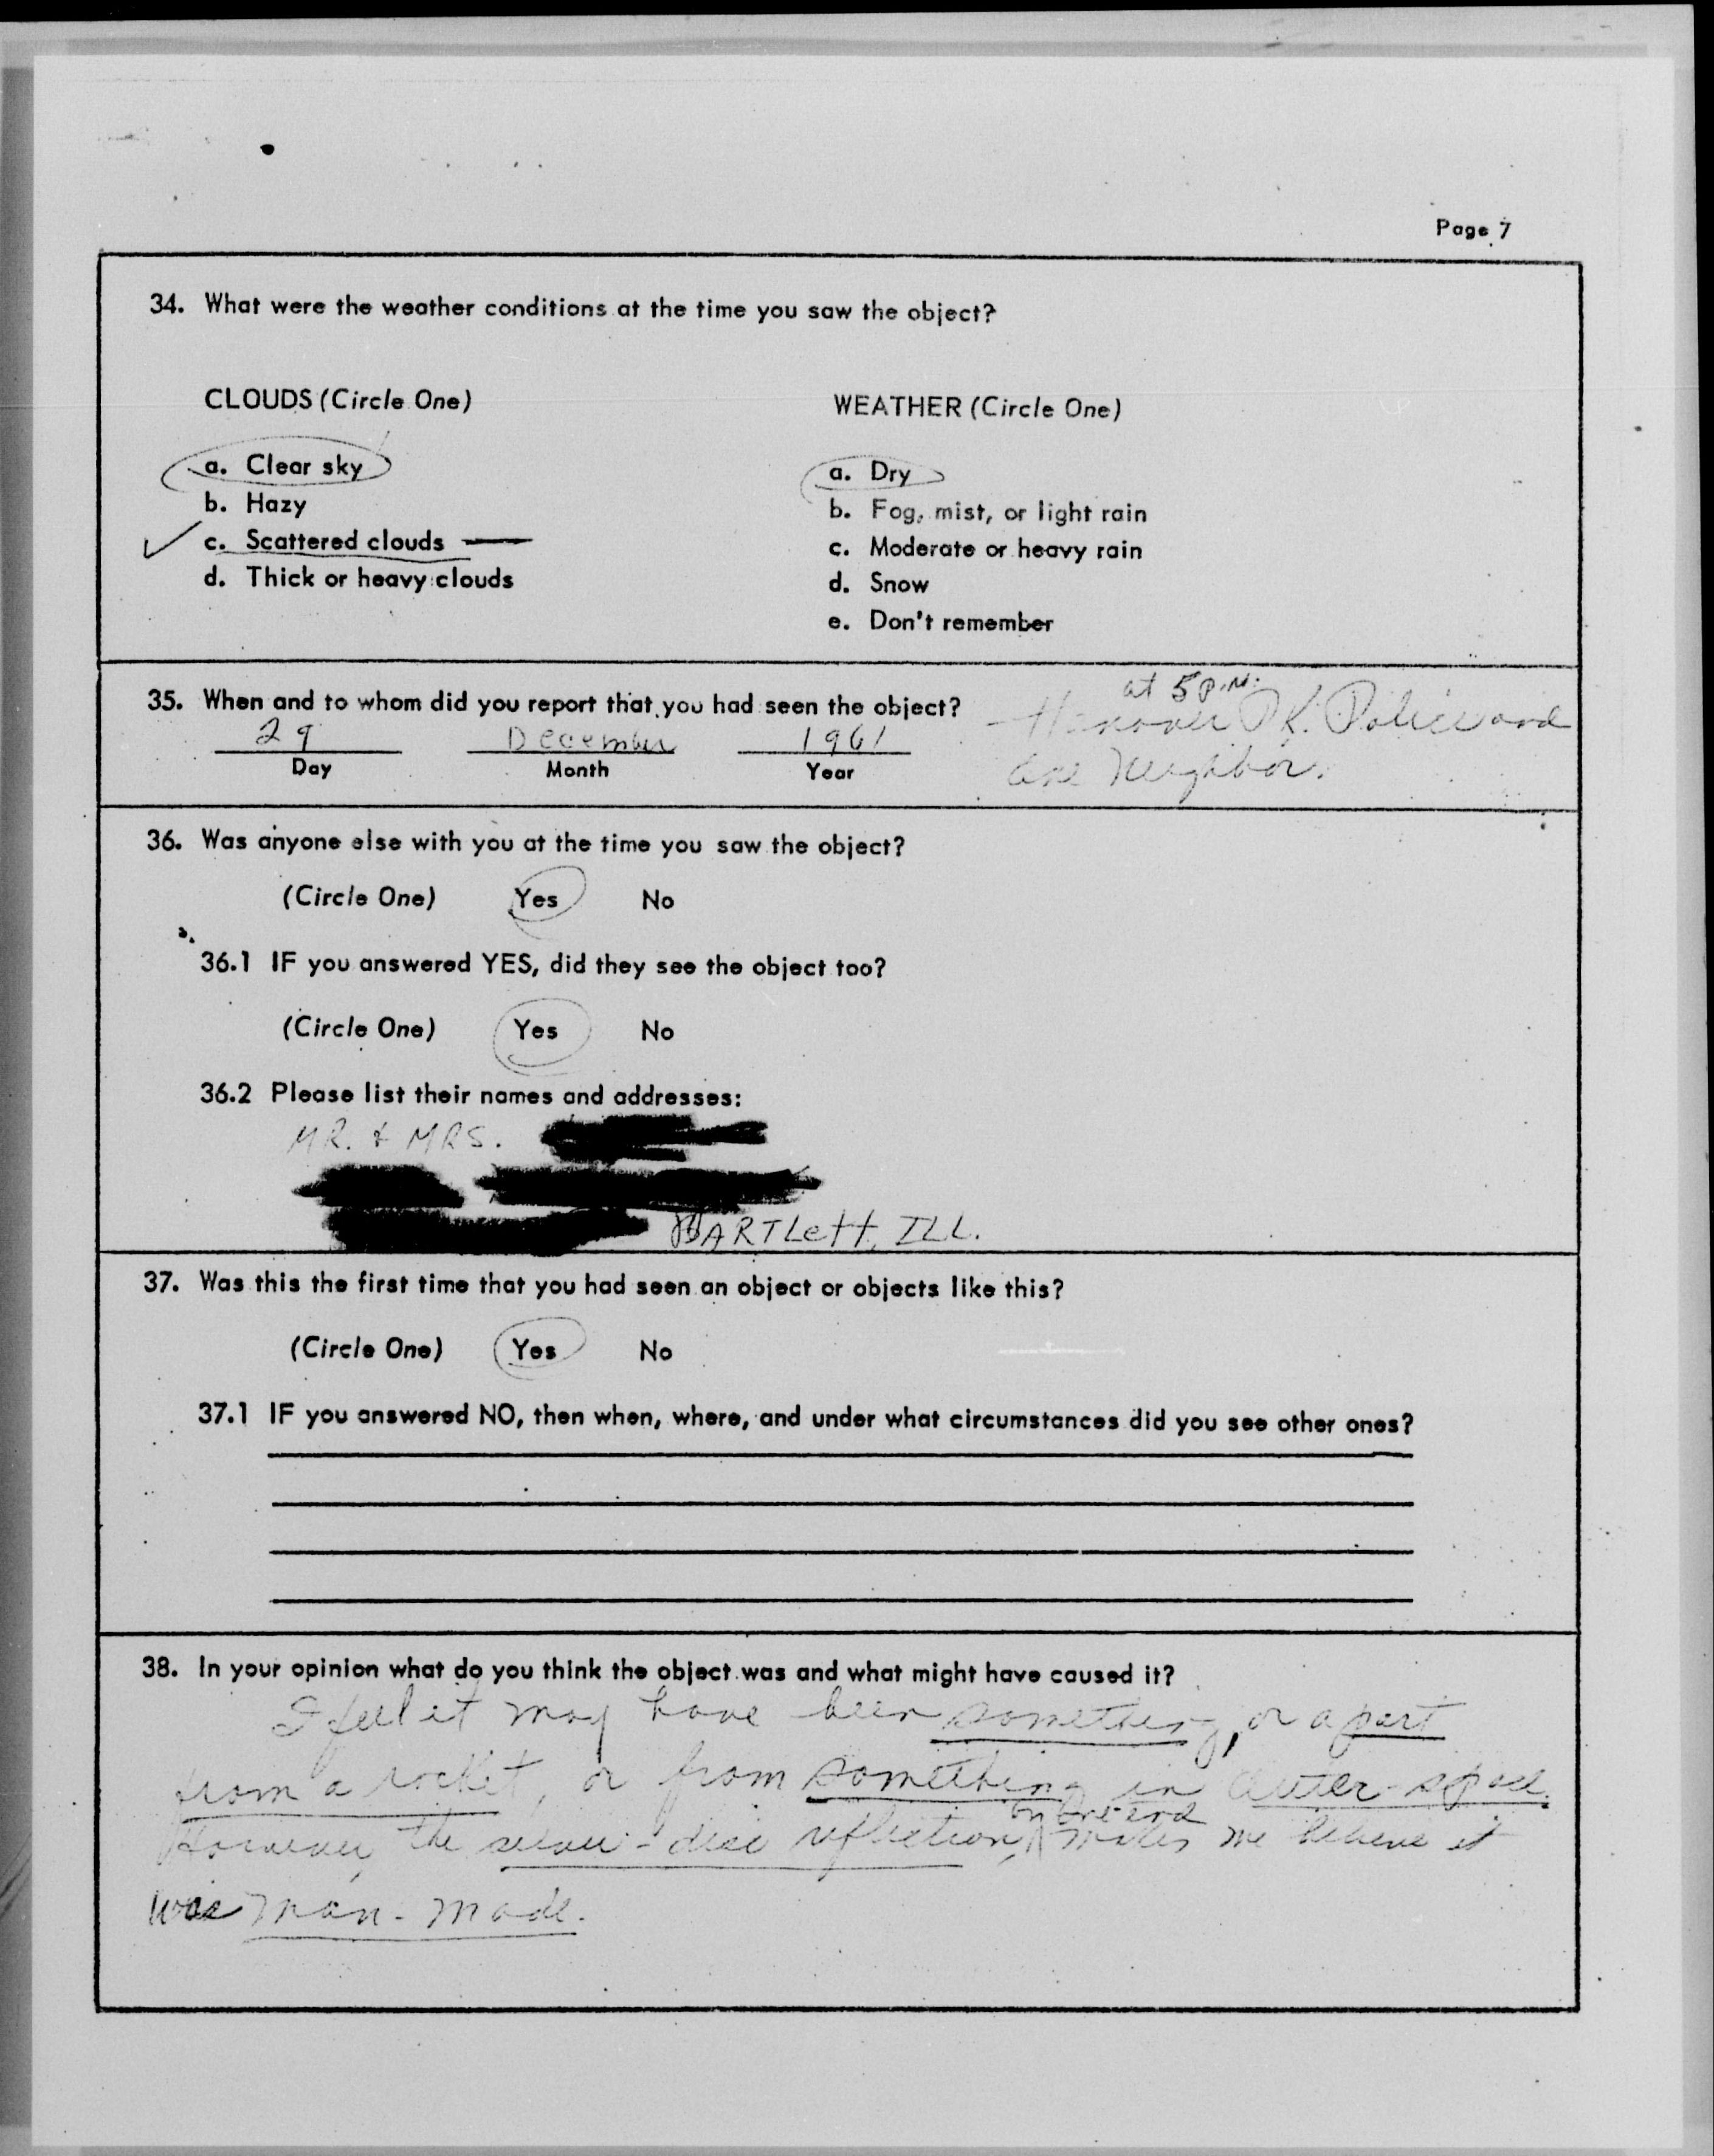 Page 7
34. What were the weather conditions at the time you saw the object?
CLOUDS (Circle One)
a. Clear sky
b. Hazy
c. Scattered clouds
d. Thick or heavy clouds
WEATHER (Circle One)
a. Dry
b. Fog, mist, or light rain
c. Moderate or heavy rain
d. Snow
e. Don't remember
35. When and to whom did you report that you had seen the object?
29 December 1961
Day Month Year
at 5 P.M.
Hanover PK. Police and
one Neighbor.
36. Was anyone else with you at the time you saw the object?
(Circle One) Yes No
36.1 IF you answered YES, did they see the object too?
(Circle One) Yes No
36.2 Please list their names and addresses:
MR. & MRS.
BARTLett, ILL.
37. Was this the first time that you had seen an object or objects like this?
(Circle One) Yes No
37.1 IF you answered NO, then when, where, and under what circumstances did you see other ones?
38. In your opinion what do you think the object was and what might have caused it?
I feel it may have been something, or a part
from a rocket, or from something in outer-space.
on one end
However, the silver-disc reflection, makes me believe it
was man-made.